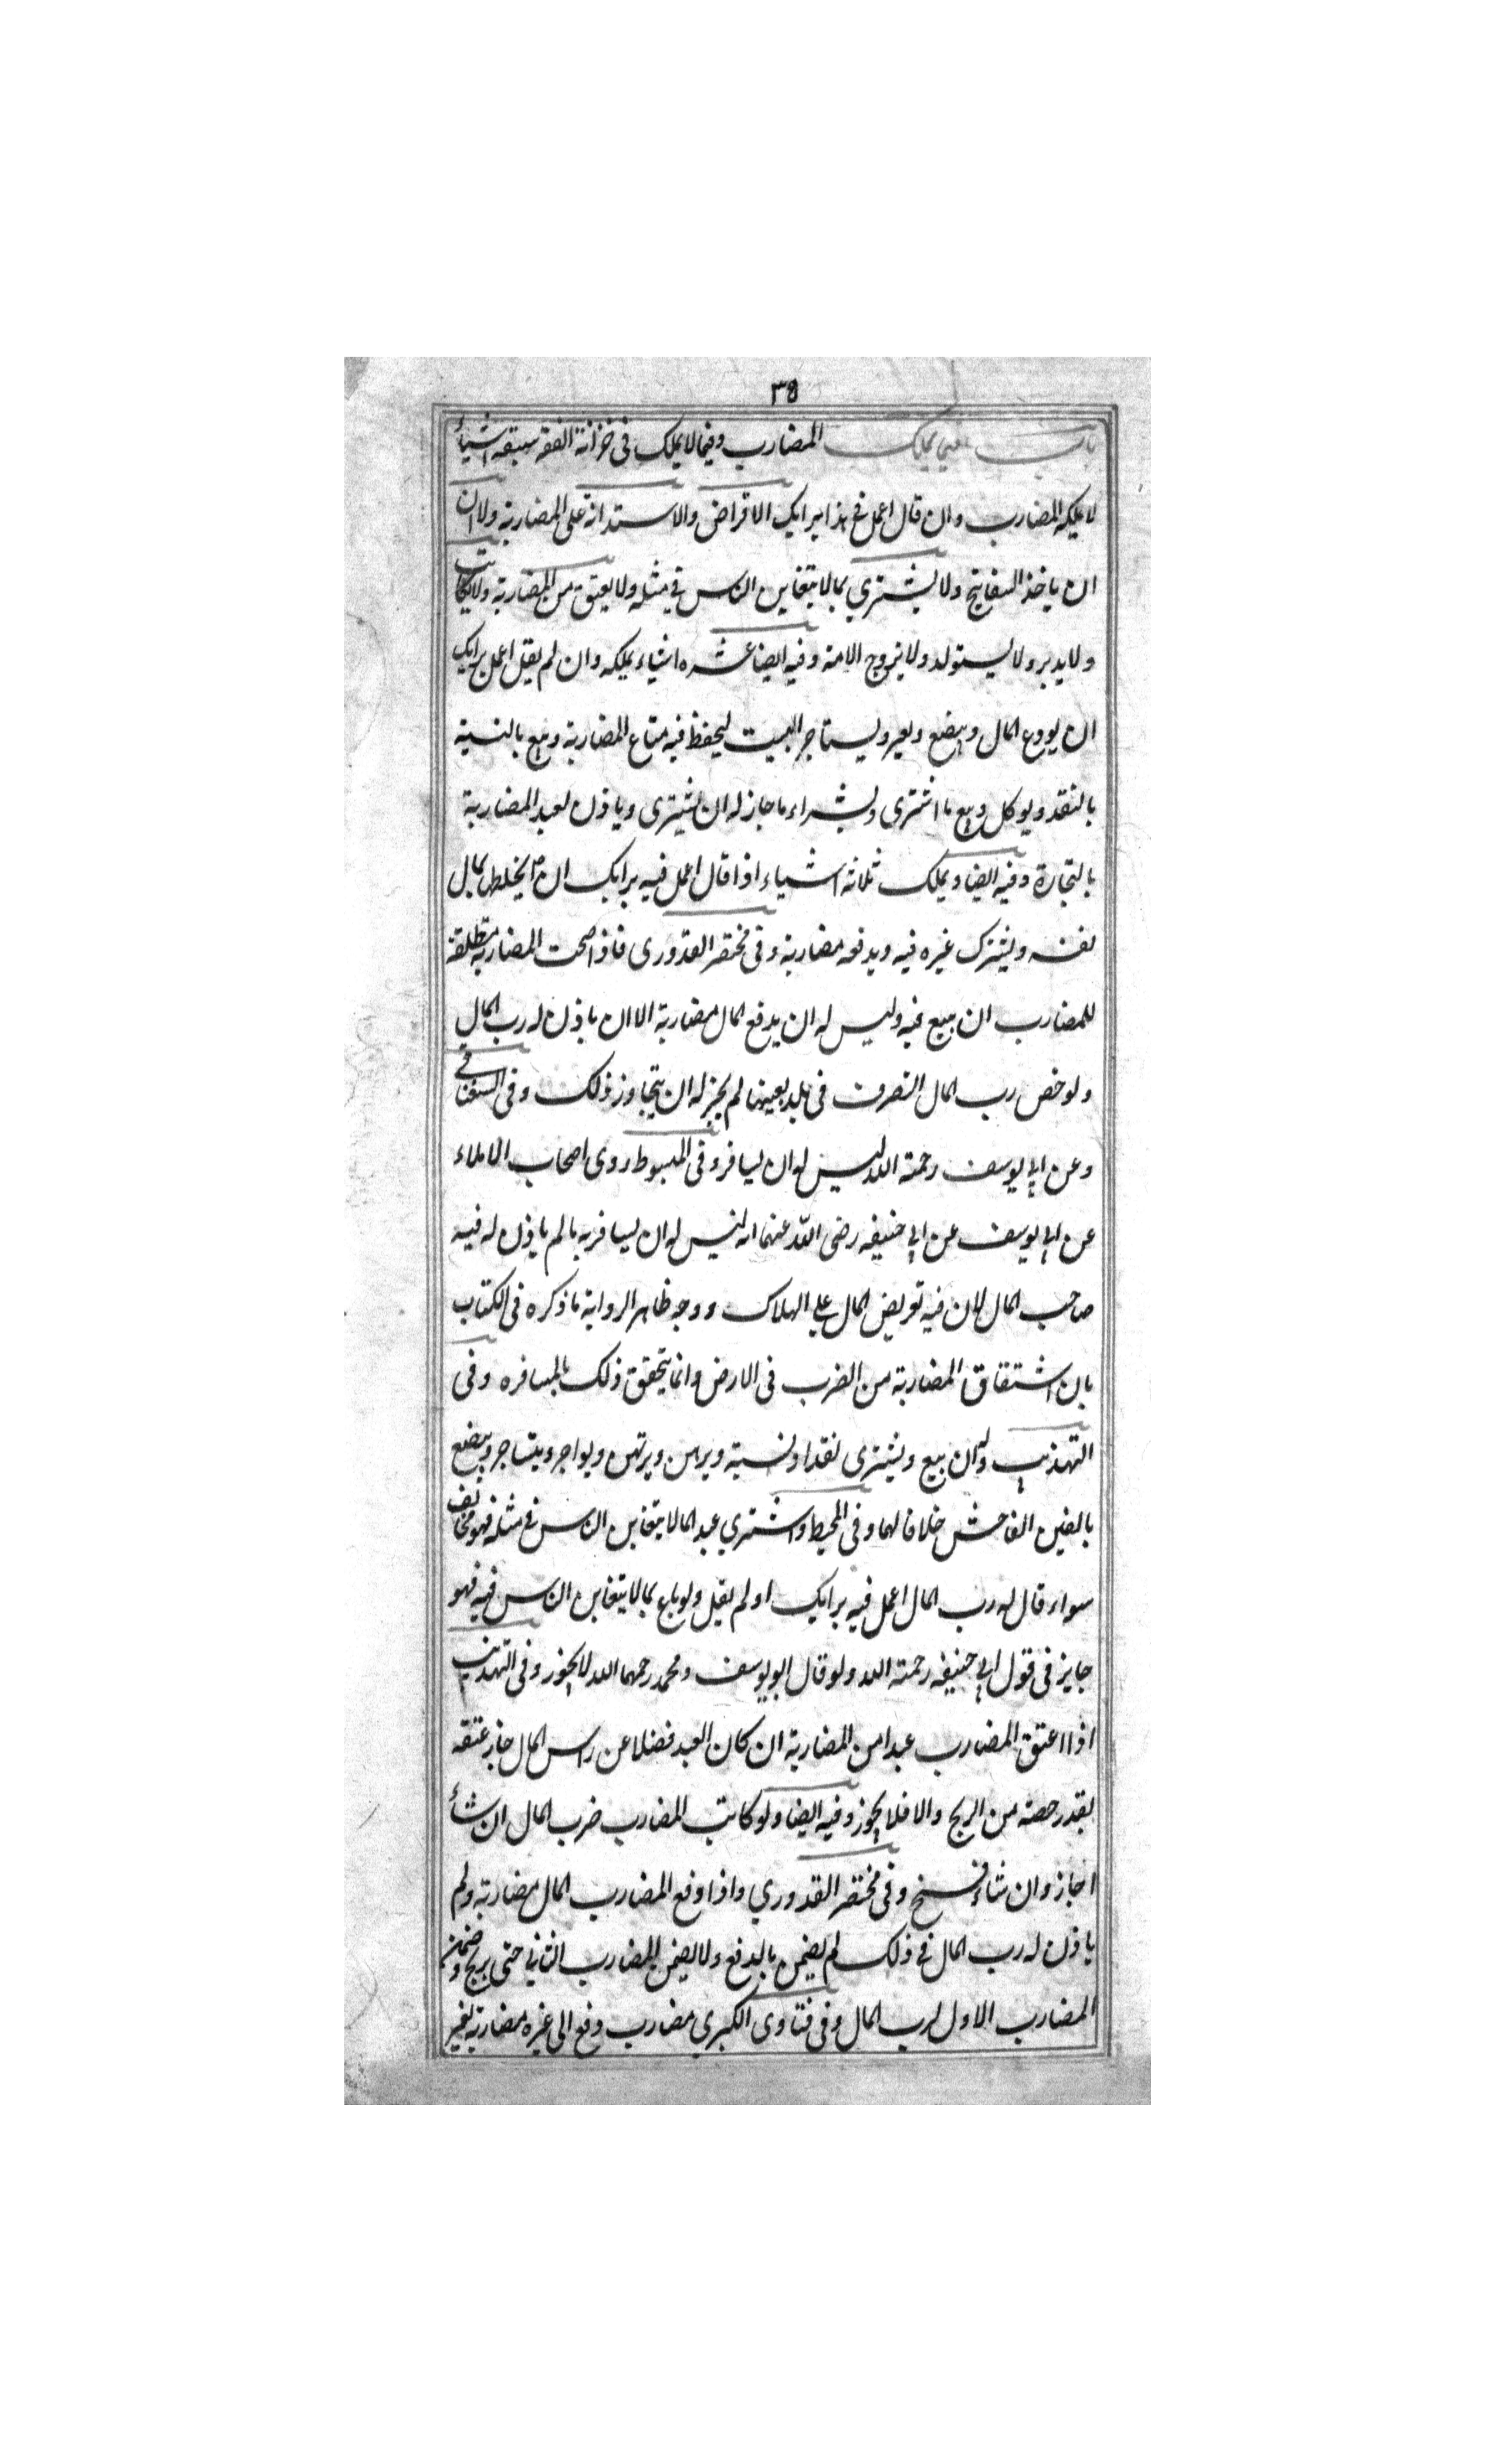 ٣٥
باب فيما يملك المضارب وفيما لا يملك فى خزانة الفقه سبعة اشياء
لا يملكه المضارب وان قال اعمل فى هذا برايك الاقراض والاستدانة على المضاربة ولا ان
ان ياخذ السفاتج ولا يشترى بما لا يتغابن الناس فى مثله ولا يعتق من المضاربة ولا يكاتب
ولا يدبر ولا يستولد ولا يزوج الامة وفيه ايضا عشره اشياء يملكه وان لم يقل اعمل برايك
ان يودع المال ويبضع ويعير ويستاجر البيت ليحفظ فيه متاع المضاربة ويبيع بالنسية
بالنقد ويوكل وبيع ما اشترى وبشراء ما جاز له ان يشترى وياذن لعبد المضاربة
بالتجارة وفيه ايضا ويملك ثلاثة اشياء اذا قال اعمل فيه برايك ان يخلط بمال
نفسه ويشترك غيره فيه ويدفعه مضاربة وفى مختصر القدورى فاذا صحت المضاربة مطلقة
للمضارب ان يبيع فيه وليس له ان يدفع المال مضاربة الا ان ياذن له رب المال
ولو خص رب المال التصرف فى بلد بعينها لم يجز له ان يتجاوز ذلك وفى السغناقى
وعن ابى يوسف رحمة الله ليس له ان يسافر وفى المبسوط روى اصحاب الاملاء
عن ابى يوسف عن ابى حنيفه رضى الله عنهما انه ليس له ان يسافر به ما لم ياذن له فيه
صاحب المال لان فيه تعريض المال على الهلاك ووجه ظاهر الرواية ما ذكره فى الكتاب
بان اشتقاق المضاربة من الضرب فى الارض وانما يتحقق ذلك بالمسافره وفى
التهذيب وله ان يبيع ويشترى نقدا ونسية ويرهن ويرتهن ويواجر ويستاجر ويبضع
بالغبن الفاحش خلافا لهما وفى المحيط واشترى عبدا بما لا يتغابن الناس فى مثله فهو مخالف
سواء قال له رب المال اعمل فيه برايك او لم يقل ولو باع بما لا يتغابن الناس فيه فهو
جايز فى قول ابى حنيفه رحمة الله ولو قال ابو يوسف ومحمد رحمهما الله لا يجوز وفى التهذيب
اذا اعتق المضارب عبدا من المضاربة ان كان العبد فضلا عن راس المال جاز عتقه
بقدر حصته من الربح والا فلا يجوز وفيه ايضا ولو كاتب المضارب فرب المال ان شاء
اجاز وان شاء فسخ وفى مختصر القدورى واذا دفع المضارب المال مضاربة ولم
ياذن له رب المال فى ذلك لم يضمن بالدفع ولا يضمن المضارب الثانى حتى يربح وضمن
المضارب الاول لرب المال وفى فتاوى الكبرى مضارب دفع الى غيره مضاربة بغير